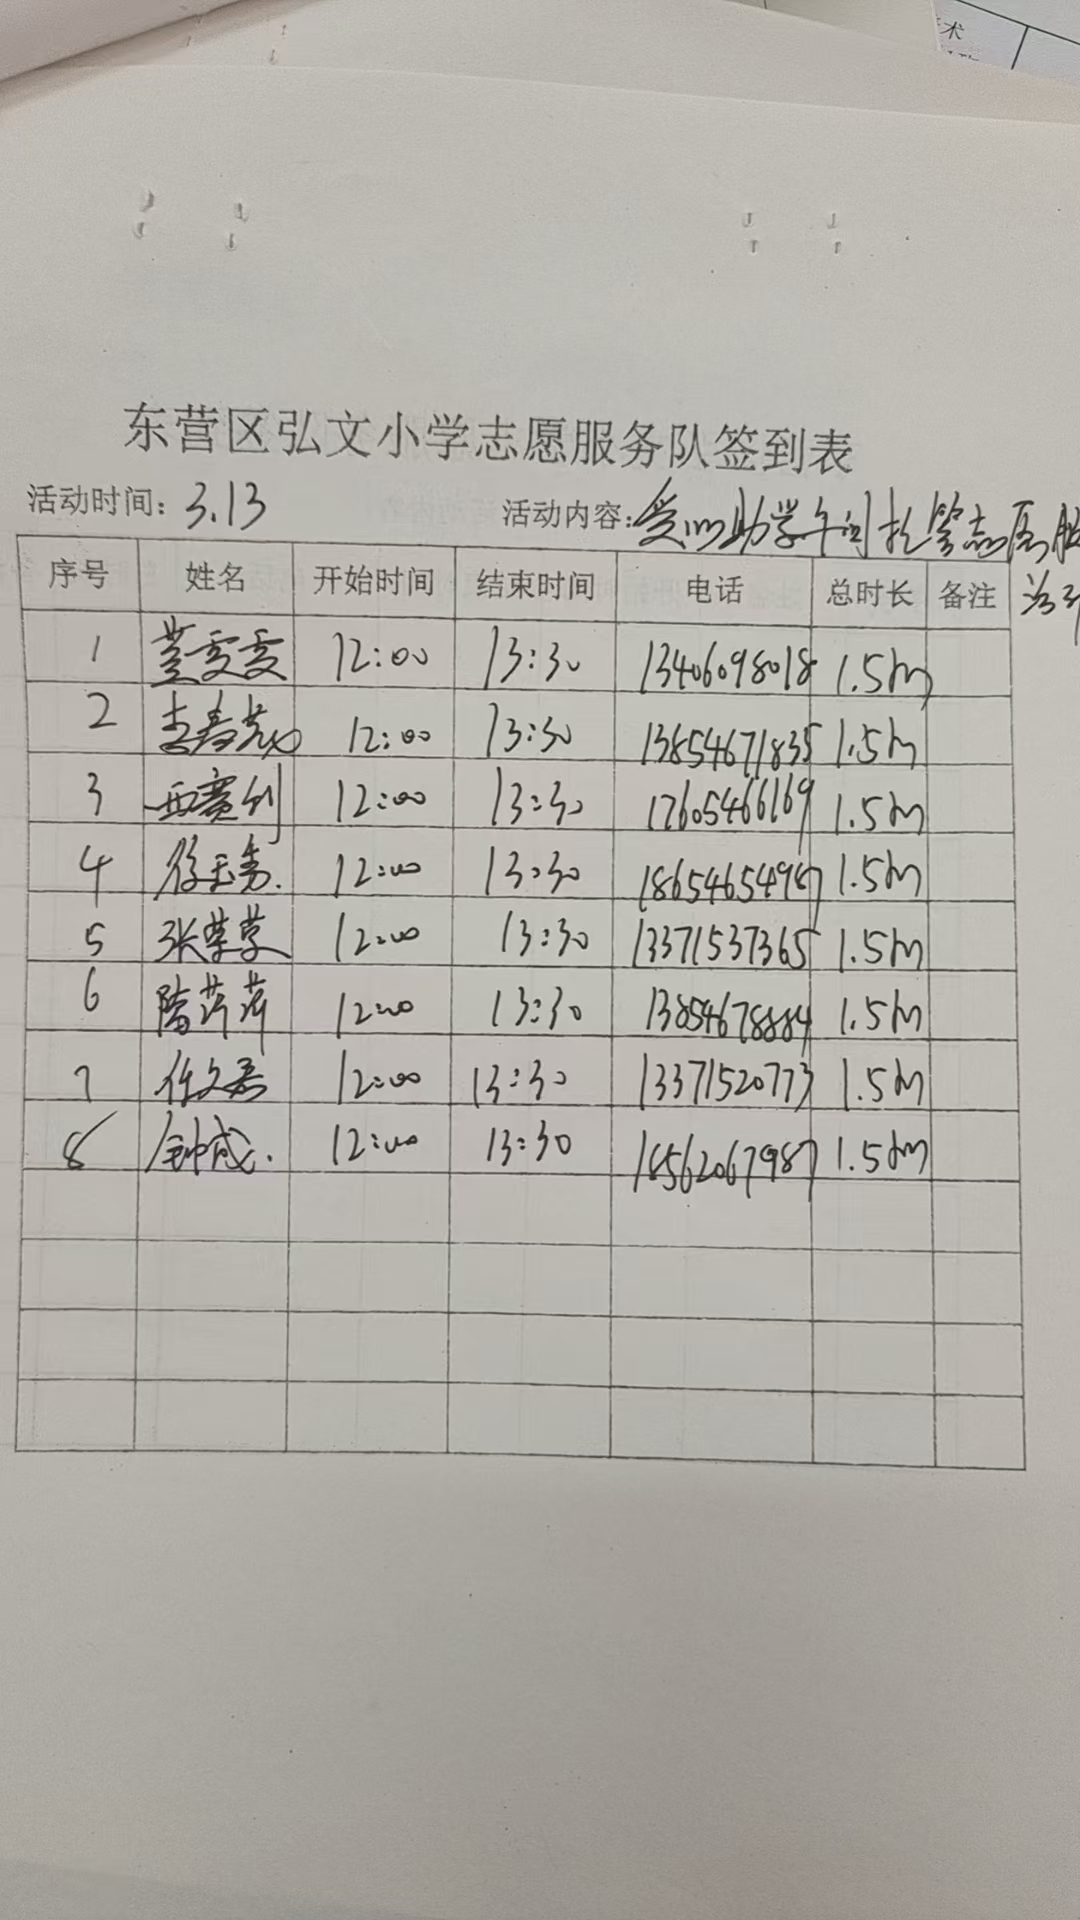 术
东营区弘文小学志愿服务队签到表
活动时间：3.13 活动内容：爱心助学午间托管志愿服
活动
序号 姓名 开始时间 结束时间 电话 总时长 备注
1 12:00 13:30 13406098018 1.5h
2 12:00 13:30 13854671835 1.5h
3 西赛剑 12:00 13:30 17605466169 1.5h
4 徐玉秀 12:00 13:30 18654654987 1.5h
5 张苹苹 12:00 13:30 13371537365 1.5h
6 隋芹芹 12:00 13:30 13854678884 1.5h
7 任文君 12:00 13:30 13371520773 1.5h
8 钟成 12:00 13:30 18562067987 1.5h